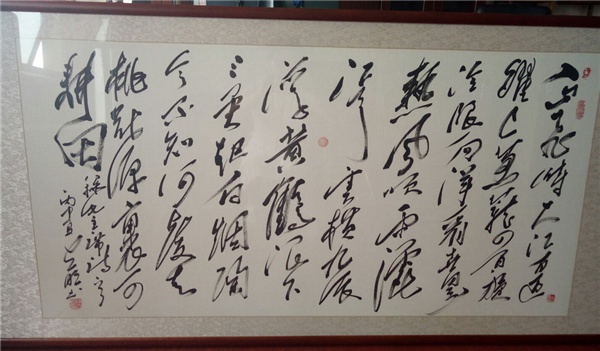 一山飞峙大江边
躍上葱蘢四百旋
冷眼向洋看世界
熱風吹雨灑
江天雲横九派
浮黄鶴浪下
三吴起白烟陶
令不知何處去
桃花源里可
耕田
主席詩
丙申